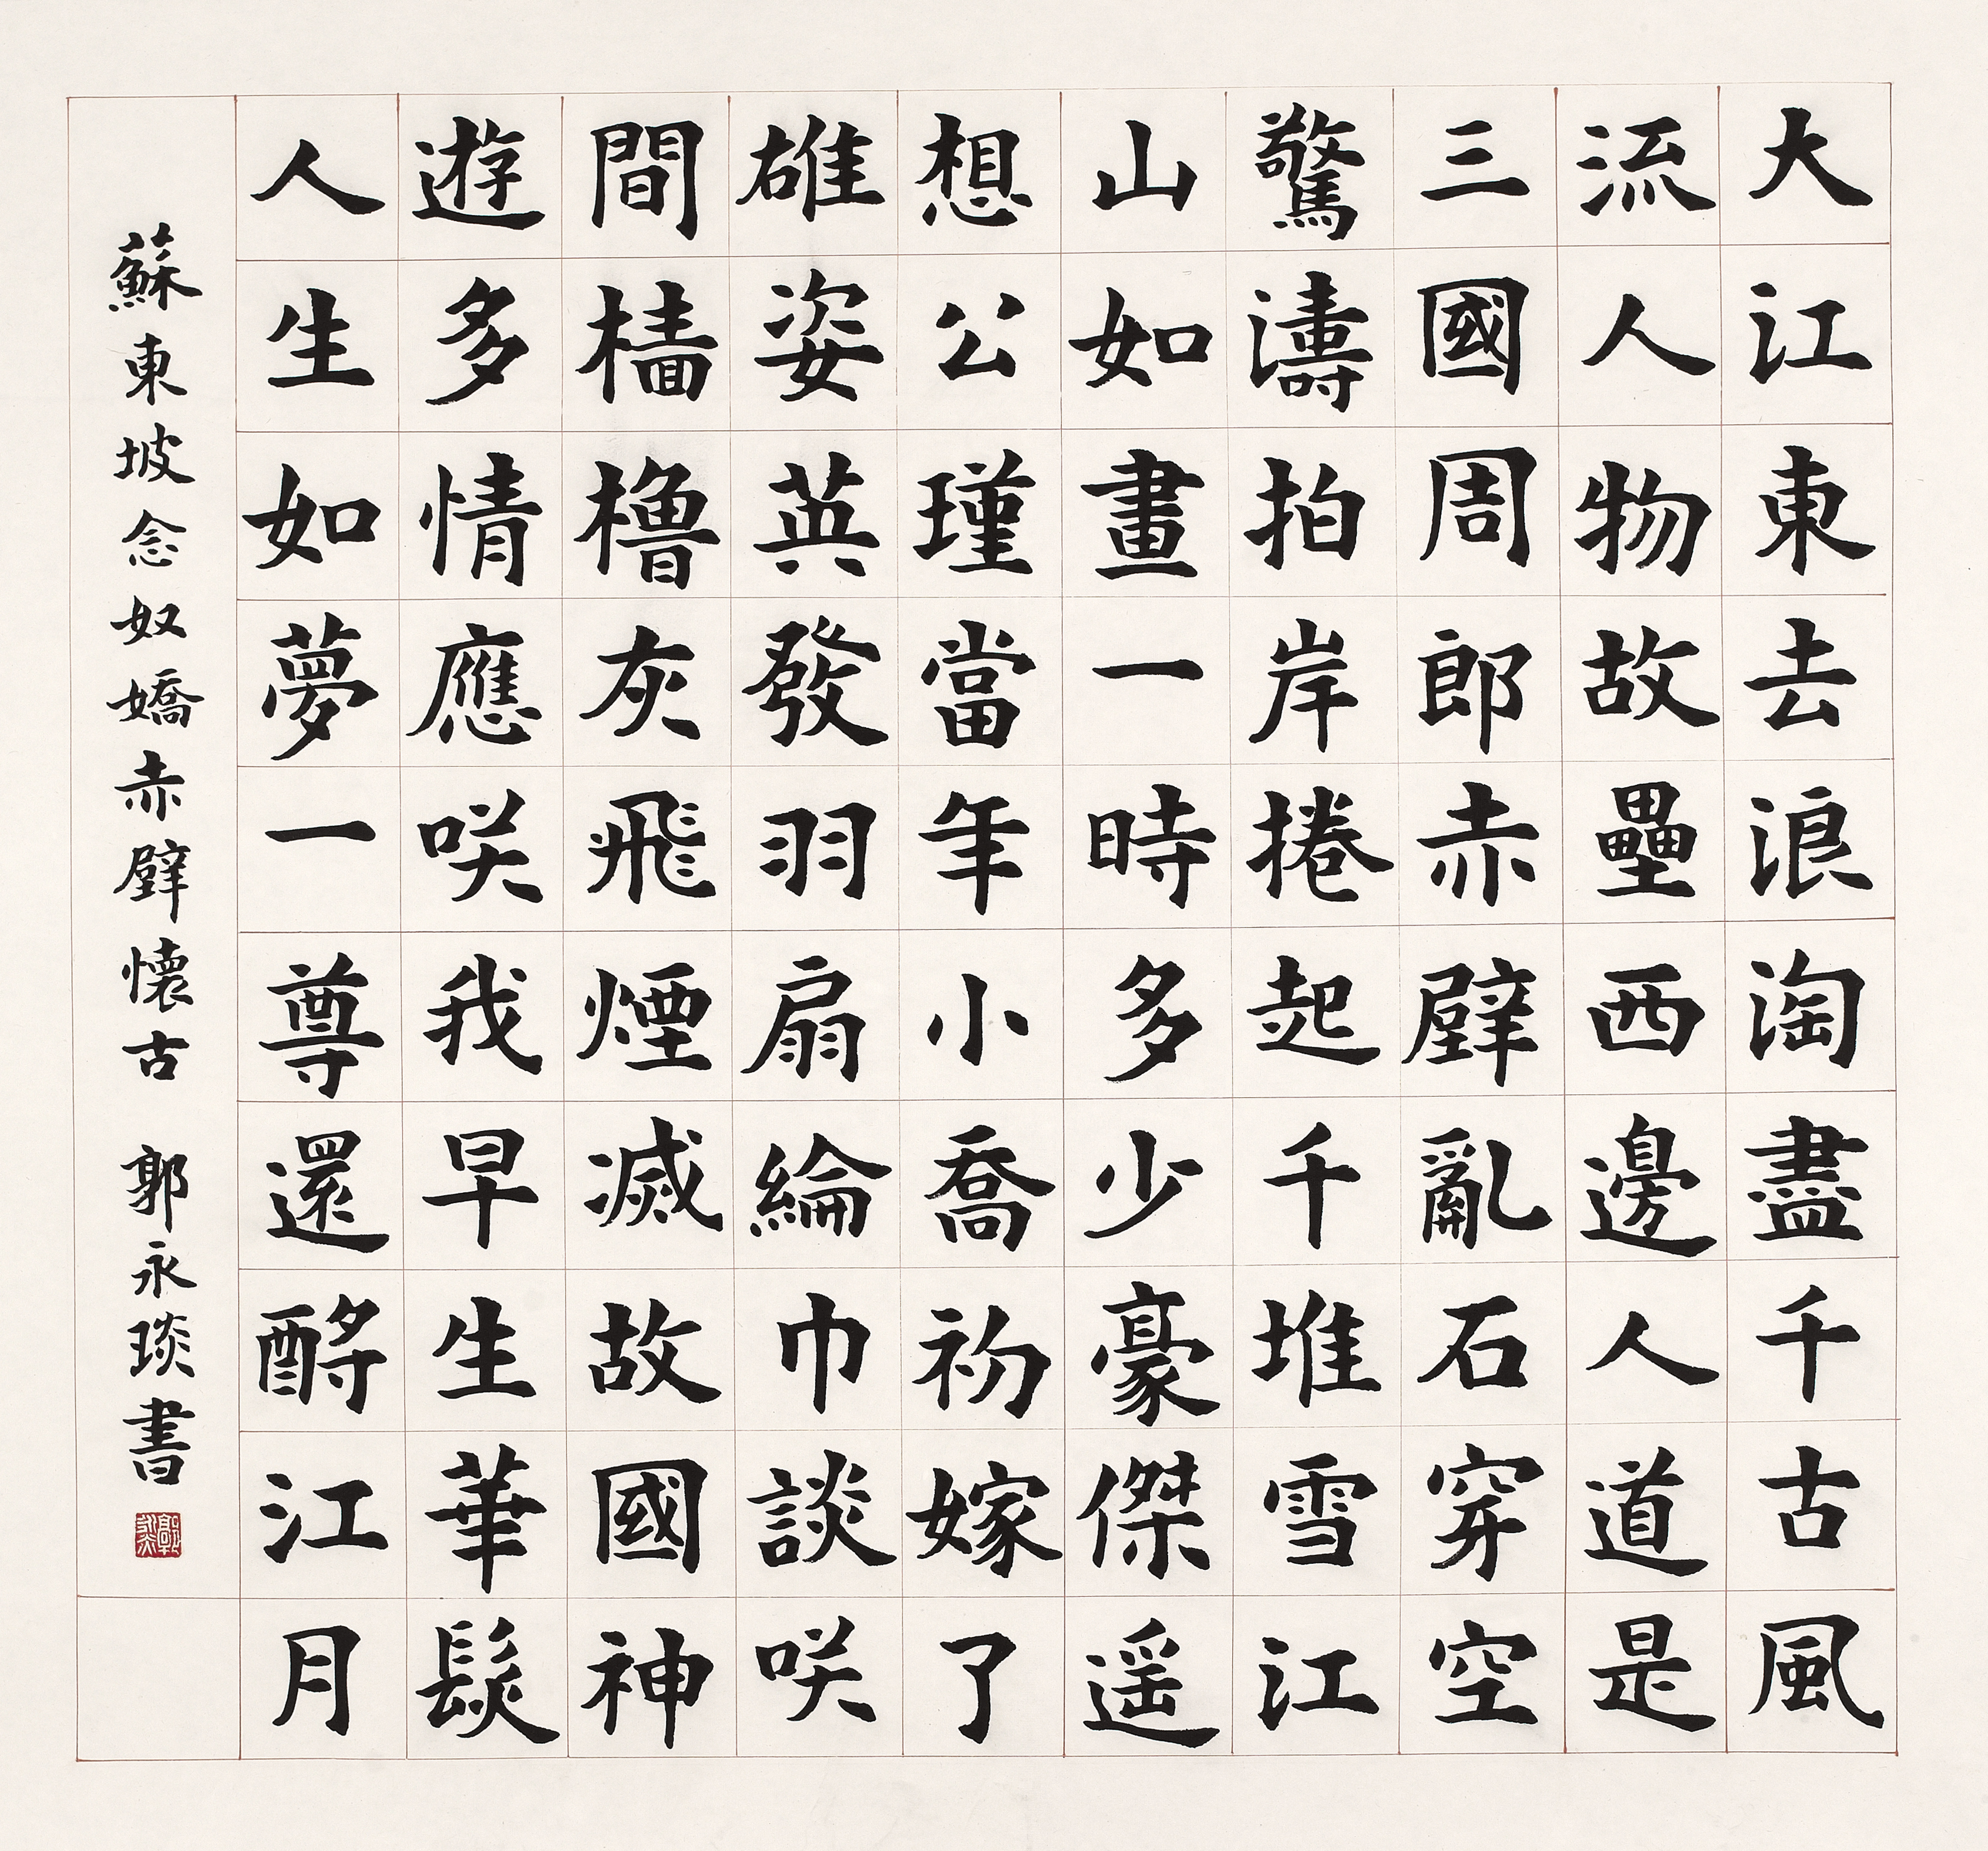 大江東去浪淘盡千古風
流人物故壘西邊人道是
三國周郎赤壁亂石穿空
驚濤拍岸捲起千堆雪江
山如畫一時多少豪傑遥
想公瑾當年小喬初嫁了
雄姿英發羽扇綸巾談咲
間檣櫓灰飛煙滅故國神
遊多情應咲我早生華髮
人生如夢一尊還酹江月
蘇東坡念奴嬌赤壁懷古 郭永琰書